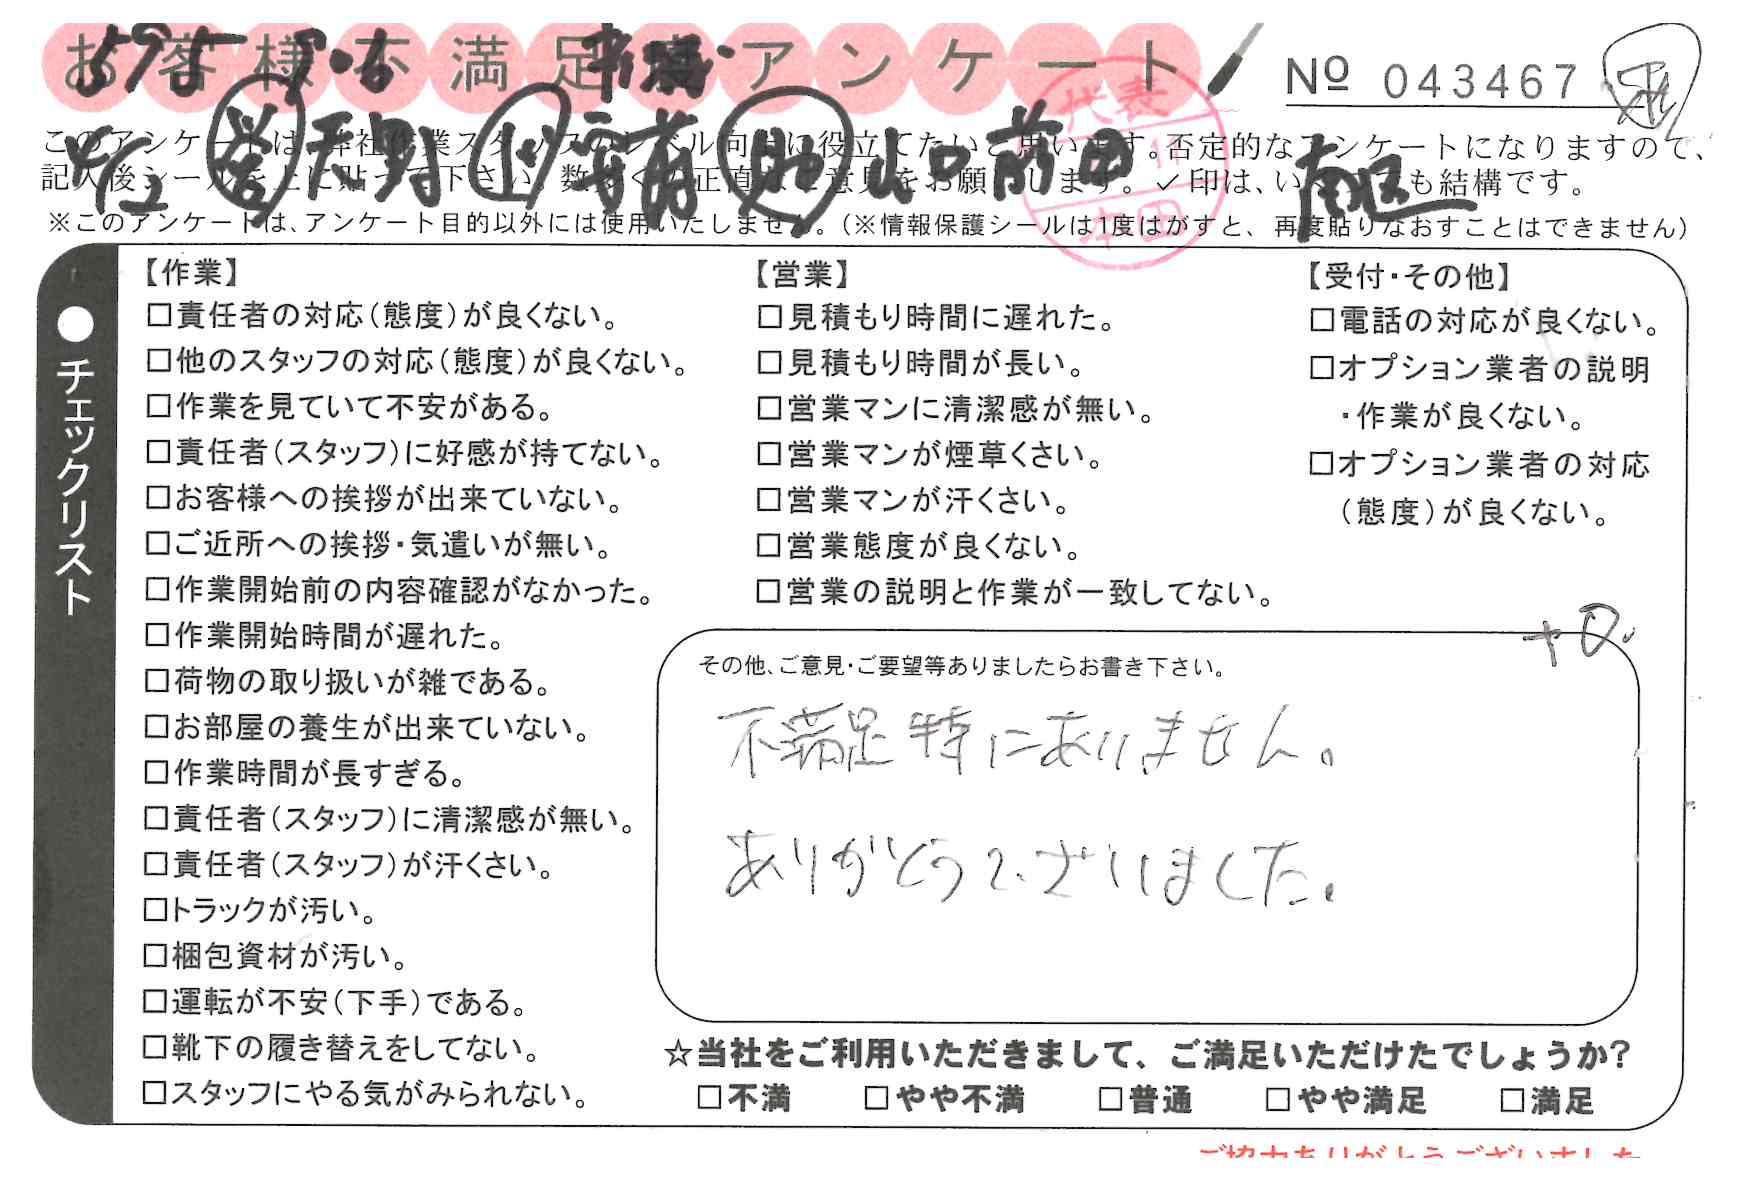 お客様不満足度アンケート
№ 043467
代表
本田
4/12
山口 前田
南区
このアンケートは、弊社作業スタッフのレベル向上に役立てたいと思います。否定的なアンケートになりますので、
記入後シールを上に貼って下さい。数多くの正直なご意見をお願いします。✓印は、いくつでも結構です。
※このアンケートは、アンケート目的以外には使用いたしません。(※情報保護シールは1度はがすと、再度貼りなおすことはできません)
●チェックリスト
【作業】
□責任者の対応(態度)が良くない。
□他のスタッフの対応(態度)が良くない。
□作業を見ていて不安がある。
□責任者(スタッフ)に好感が持てない。
□お客様への挨拶が出来ていない。
□ご近所への挨拶・気遣いが無い。
□作業開始前の内容確認がなかった。
□作業開始時間が遅れた。
□荷物の取り扱いが雑である。
□お部屋の養生が出来ていない。
□作業時間が長すぎる。
□責任者(スタッフ)に清潔感が無い。
□責任者(スタッフ)が汗くさい。
□トラックが汚い。
□梱包資材が汚い。
□運転が不安(下手)である。
□靴下の履き替えをしてない。
□スタッフにやる気がみられない。
【営業】
□見積もり時間に遅れた。
□見積もり時間が長い。
□営業マンに清潔感が無い。
□営業マンが煙草くさい。
□営業マンが汗くさい。
□営業態度が良くない。
□営業の説明と作業が一致してない。
【受付・その他】
□電話の対応が良くない。
□オプション業者の説明
・作業が良くない。
□オプション業者の対応
(態度)が良くない。
その他、ご意見・ご要望等ありましたらお書き下さい。
不満足特にありません。
ありがとうございました。
☆当社をご利用いただきまして、ご満足いただけたでしょうか?
□不満 □やや不満 □普通 □やや満足 □満足
ご協力ありがとうございました